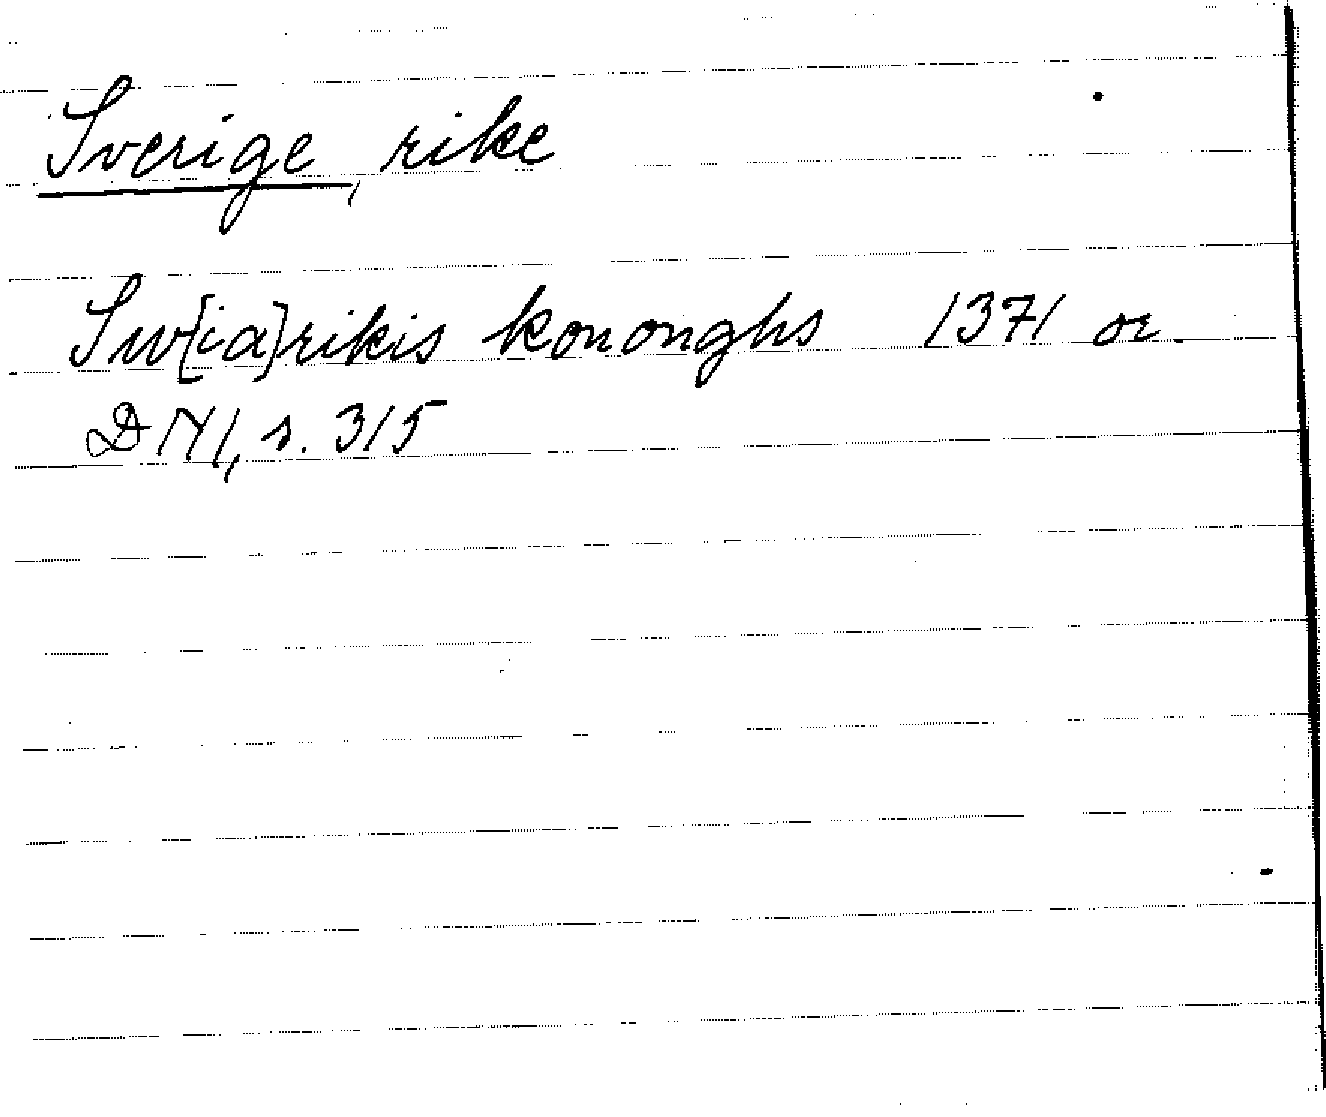 Sverige, rike
Sw[ia]rikis kononghs 1371 or.
DN 1, s. 315